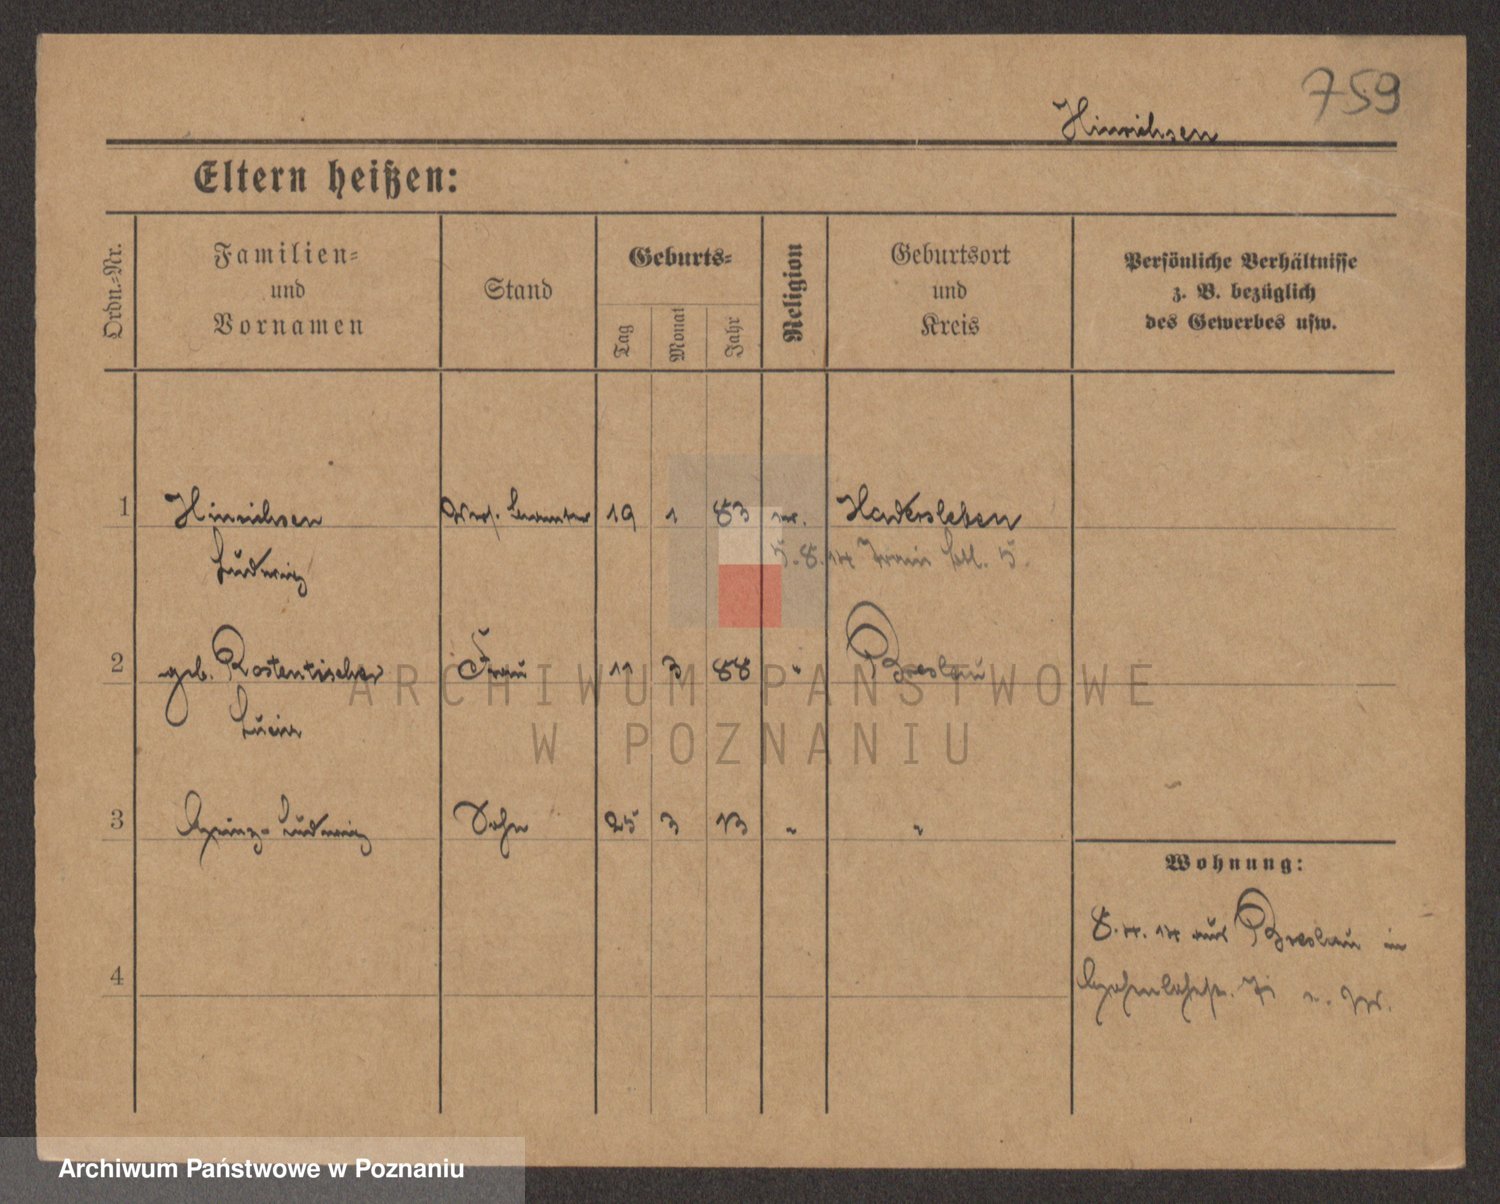 759
Hinrichsen
Eltern heißen:
Ordn.-Nr.
Familien-
und
Vornamen
Stand
Geburts-
Tag
Monat
Jahr
Religion
Geburtsort
und
Kreis
Persönliche Verhältnisse
z. B. bezüglich
des Gewerbes usw.
1 Hinrichsen 19 1 83 ev. Hadersleben
Ludwig 5.8.14 Train 5.
2 geb. Rostentischer Frau 11 3 88 " Breslau
Lucie
3 Heinz-Ludwig Sohn 25 3 13 " "
Wohnung:
8.4.14 aus Breslau in
Hohenlohestr.
4
ARCHIWUM PAŃSTWOWE
W POZNANIU
Archiwum Państwowe w Poznaniu